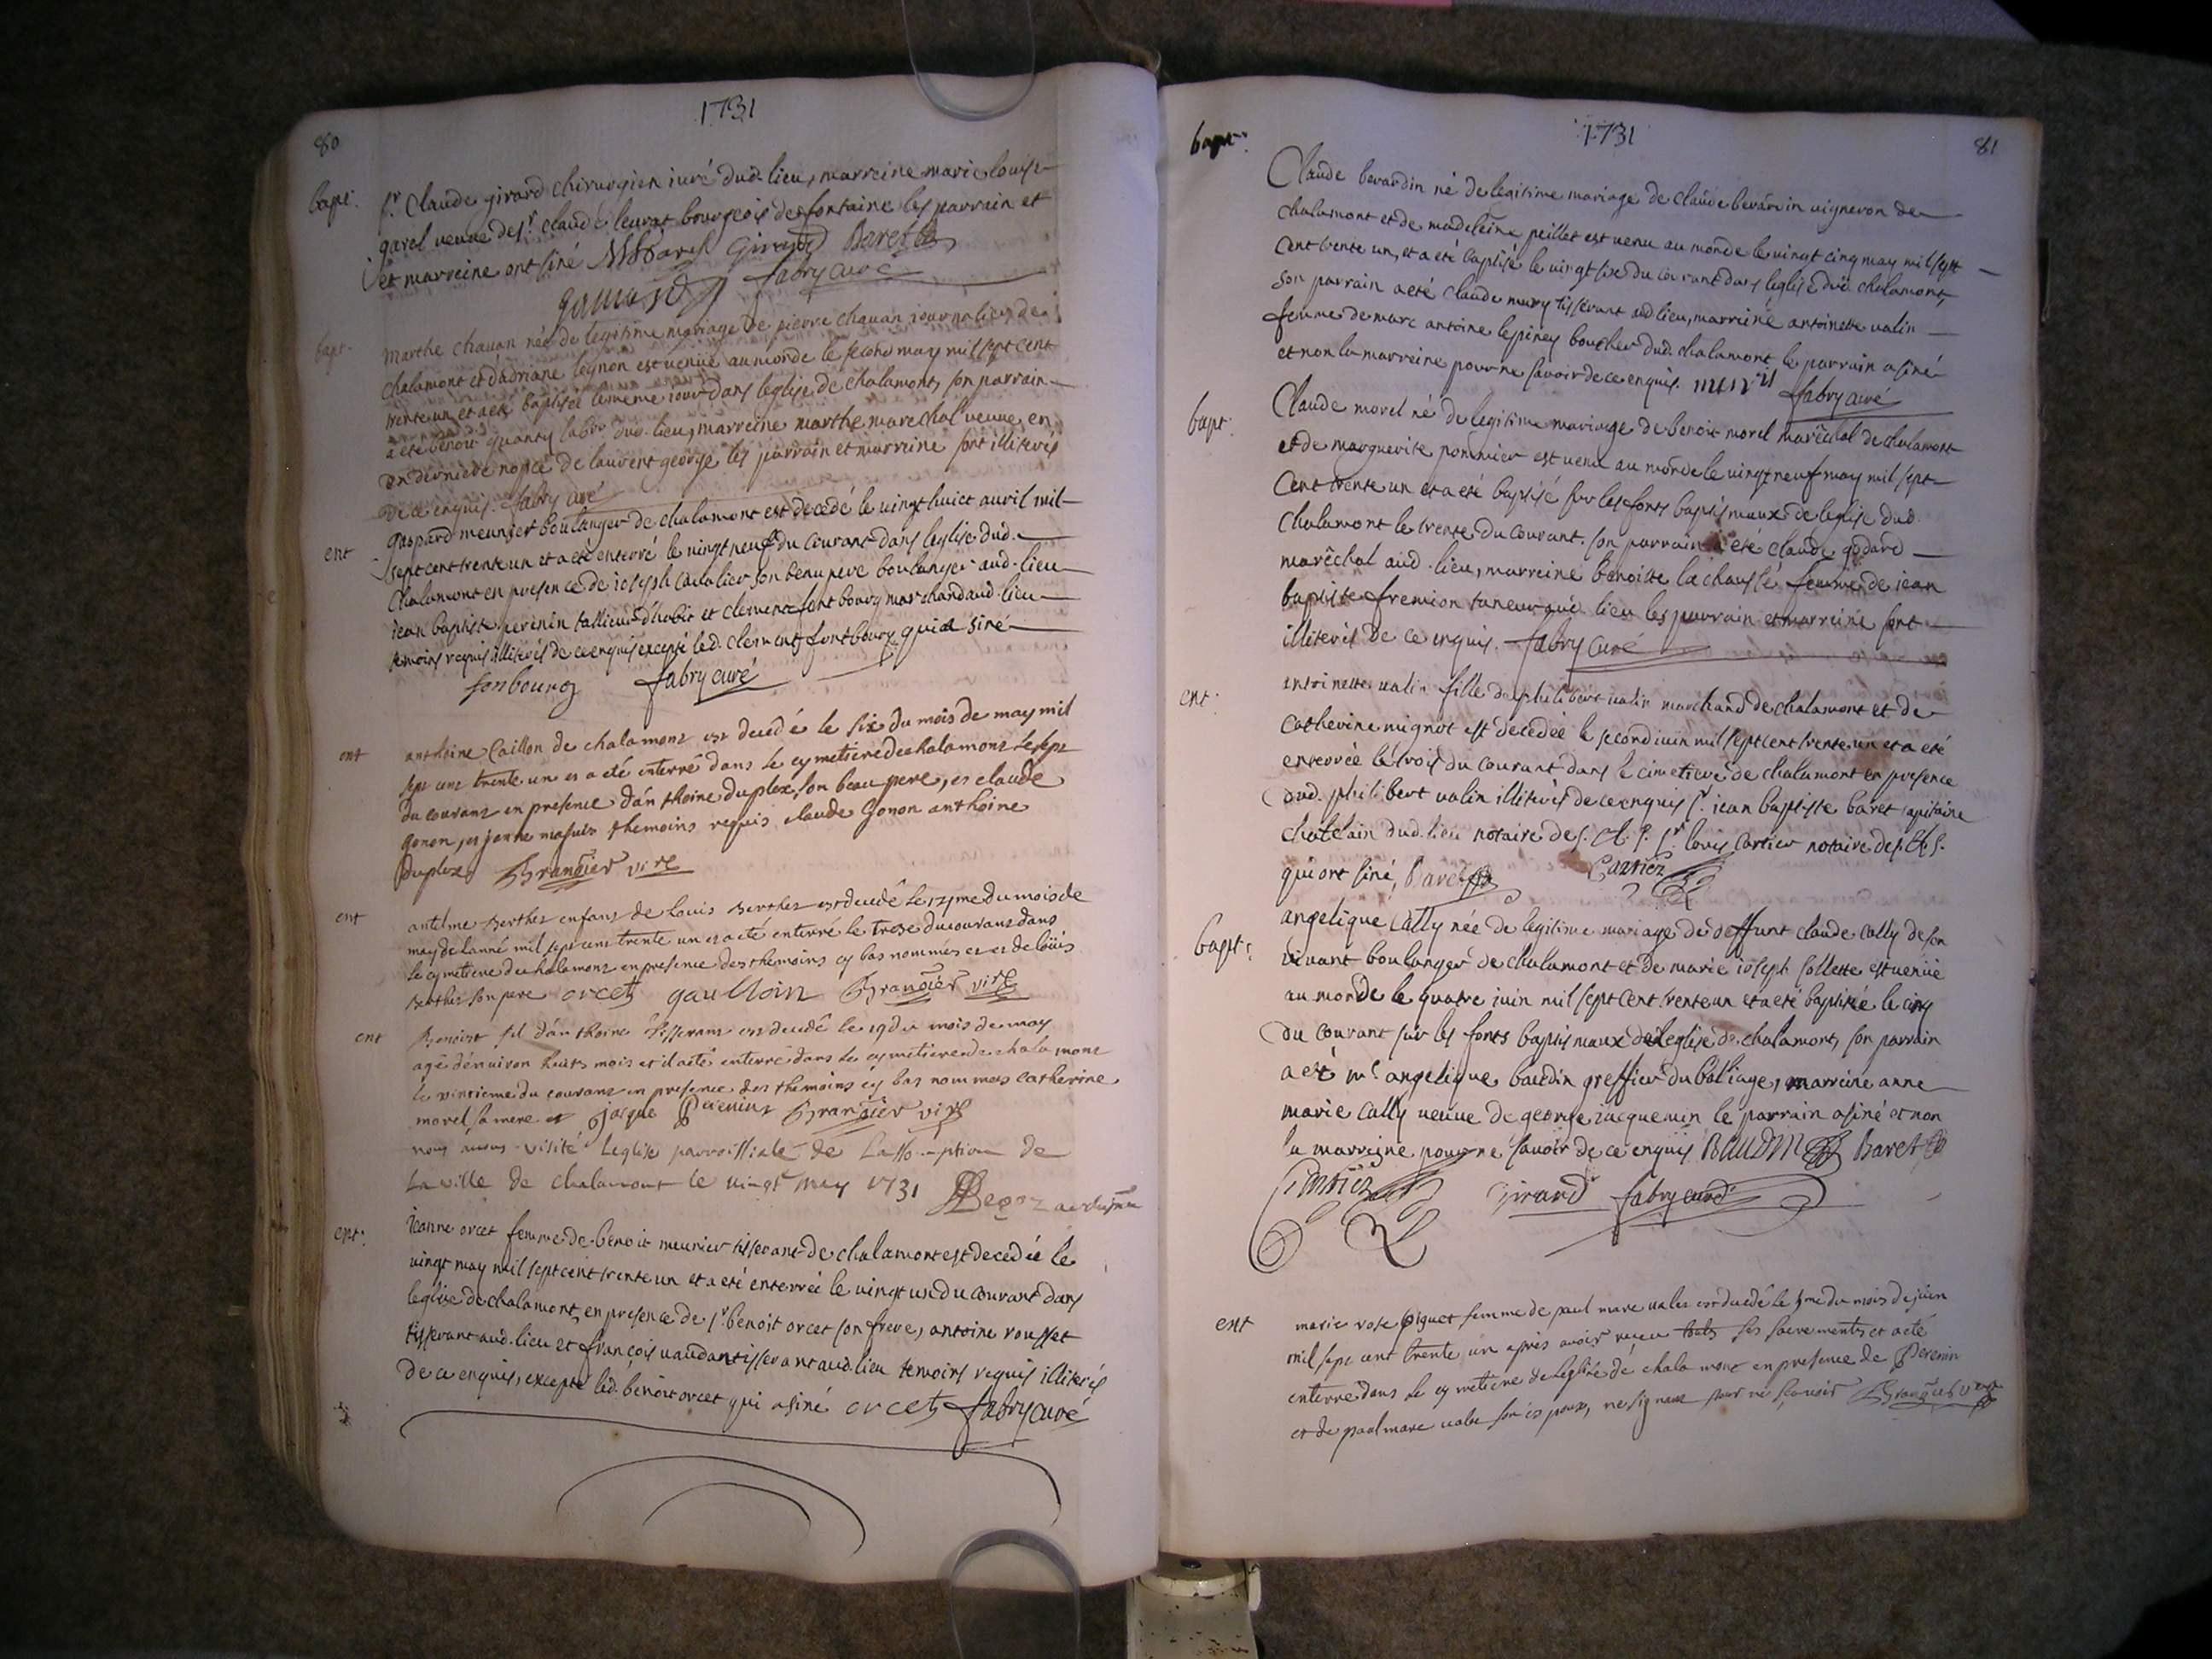 80
1731
bapt.
sr. Claude girard chirurgien iuré dud. lieu, marreine marie louise
garel veuve de sr. claude leurat bourgeois de fontaine les parrain et
et marreine ont siné Girard Baret
fabry curé
bapt.
marthe chavan née de legitime mariage de pierre chavan iournalier de
chalamont et d'adriane legnon est venue au monde le second may mil sept cent
trente un et a eté baptisée le meme iour dans leglise de chalamont, son parrain
a eté benoit quanty labr. dud. lieu, marreine marthe marechal veuve en
en derniere nopce de laurent george les parrain et marreine sont illiterés
de ce enquis. fabry curé
ent
gaspard meunier boulanger de chalamont est decedé le vingt huict auril mil
sept cent trente un et a eté enterré le vingt neuf du courant dans leglise dud.
chalamont en presence de ioseph cavalier son beau pere boulanger aud. lieu
iean baptiste perenin tallieur d'habit et clement fontbourg marchand aud. lieu
temoins requis illiterés de ce enquis excepté led. clement fontbourg qui a siné
fonbourg fabry curé
ent
anthoine Caillon de chalamont est decedé le six du mois de may mil
sept cent trente un et a eté enterré dans le cymetiere de chalamont le sept
du courant en presence d'anthoine duplex son beau pere, et claude
gonon, et themoins requis, claude Gonon anthoine
duplex Brangier vire
ent
antelme berthet enfant de Louis berthet est decedé le 12me du mois de
may de l'anné mil sept cent trente un et a eté enterré le treze du courant dans
le cymetiere de chalamont en presence des themoins cy bas nommés et de loüis
berthet son pere orcet gaulloin Brangier vire
ent
Benoist fil d'anthoine Tisserant est decedé le 19 du mois de may
agé d'enuiron huits mois et il a eté enterré dans le cymetiere de chalamont
le vintieme du courant en presence des themoins cy bas nommes catherine
morel sa mere et Jacque Perenint Brangier vire
nous auons visité Leglise parroissiale de Lassomption de
la ville de chalamont le vingt may 1731
ent.
ieanne orcet femme de benoit meunier tisserant de chalamont est decedée le
vingt may mil sept cent trente un et a eté enterrée le vingt un du courant dans
leglise de chalamont, en presence de sr. benoit orcet son frere, antoine rousset
tisserant aud. lieu et françois vaudan tisserant aud. lieu temoins requis illiterés
de ce enquis, excepté led. benoit orcet qui a siné orcet fabry curé
1731
81
bapt.
Claude berardin né de legitime mariage de claude berardin vigneron de
chalamont et de madeleine peillet est venu au monde le vingt cinq may mil sept
cent trente un, et a eté baptisé le vingt six du courant dans leglise dud. chalamont,
son parrain a eté claude mury tisserant aud. lieu, marreine antoinette valin
femme de marc antoine lepiney boucher dud. chalamont le parrain a siné
et non la marreine pour ne savoir de ce enquis. fabry curé
bapt.
Claude morel né de legitime mariage de benoit morel marêchal de chalamont
et de marguerite pommier est venu au monde le vingt neuf may mil sept
cent trente un et a eté baptisé sur les fonts baptismaux de leglise dud.
chalamont le trente du courant. son parrain a eté claude godard
marêchal aud. lieu, marreine benoitte la chaussé femme de iean
baptiste fremion taneur aud. lieu les parrain et marreine sont
illiterés de ce enquis. fabry curé
ent.
antoinette valin fille de philibert valin marchand de chalamont et de
catherine mignot est decedée le second iuin mil sept cent trente un et a eté
enterrée le trois du courant dans le cimetiere de chalamont en presence
dud. philibert valin illiterés de ce enquis sr. iean baptiste baret capitaine
chatelain dud. lieu notaire de s. A. S. sr. louis cartier notaire de s. A. S.
qui ont siné, Baret Cartier
bapt.
angelique cally née de legitime mariage de deffunt claude cally de son
vivant boulanger de chalamont et de marie ioseph collette est venüe
au monde le quatre iuin mil sept cent trente un et a eté baptisée le cinq
du courant sur les fonts baptismaux de leglise de chalamont, son parrain
a eté mr. angelique baudin greffier du balliage, marreine anne
marie cally veuve de george iacquemin le parrain a siné et non
la marreine pour ne savoir de ce enquis Baudin Baret
Cartier Girard fabry curé
ent
marie rose piguet femme de paul marc valet est decedé le 5me du mois de juin
mil sept cent trente un apres avoir receu touts ses sacrements et a eté
enterré dans le cymetiere de leglise de chalamont en presence de Perenin
et de paul marc valet son epoux, ne signant pour ne sçauoir Brangier vire